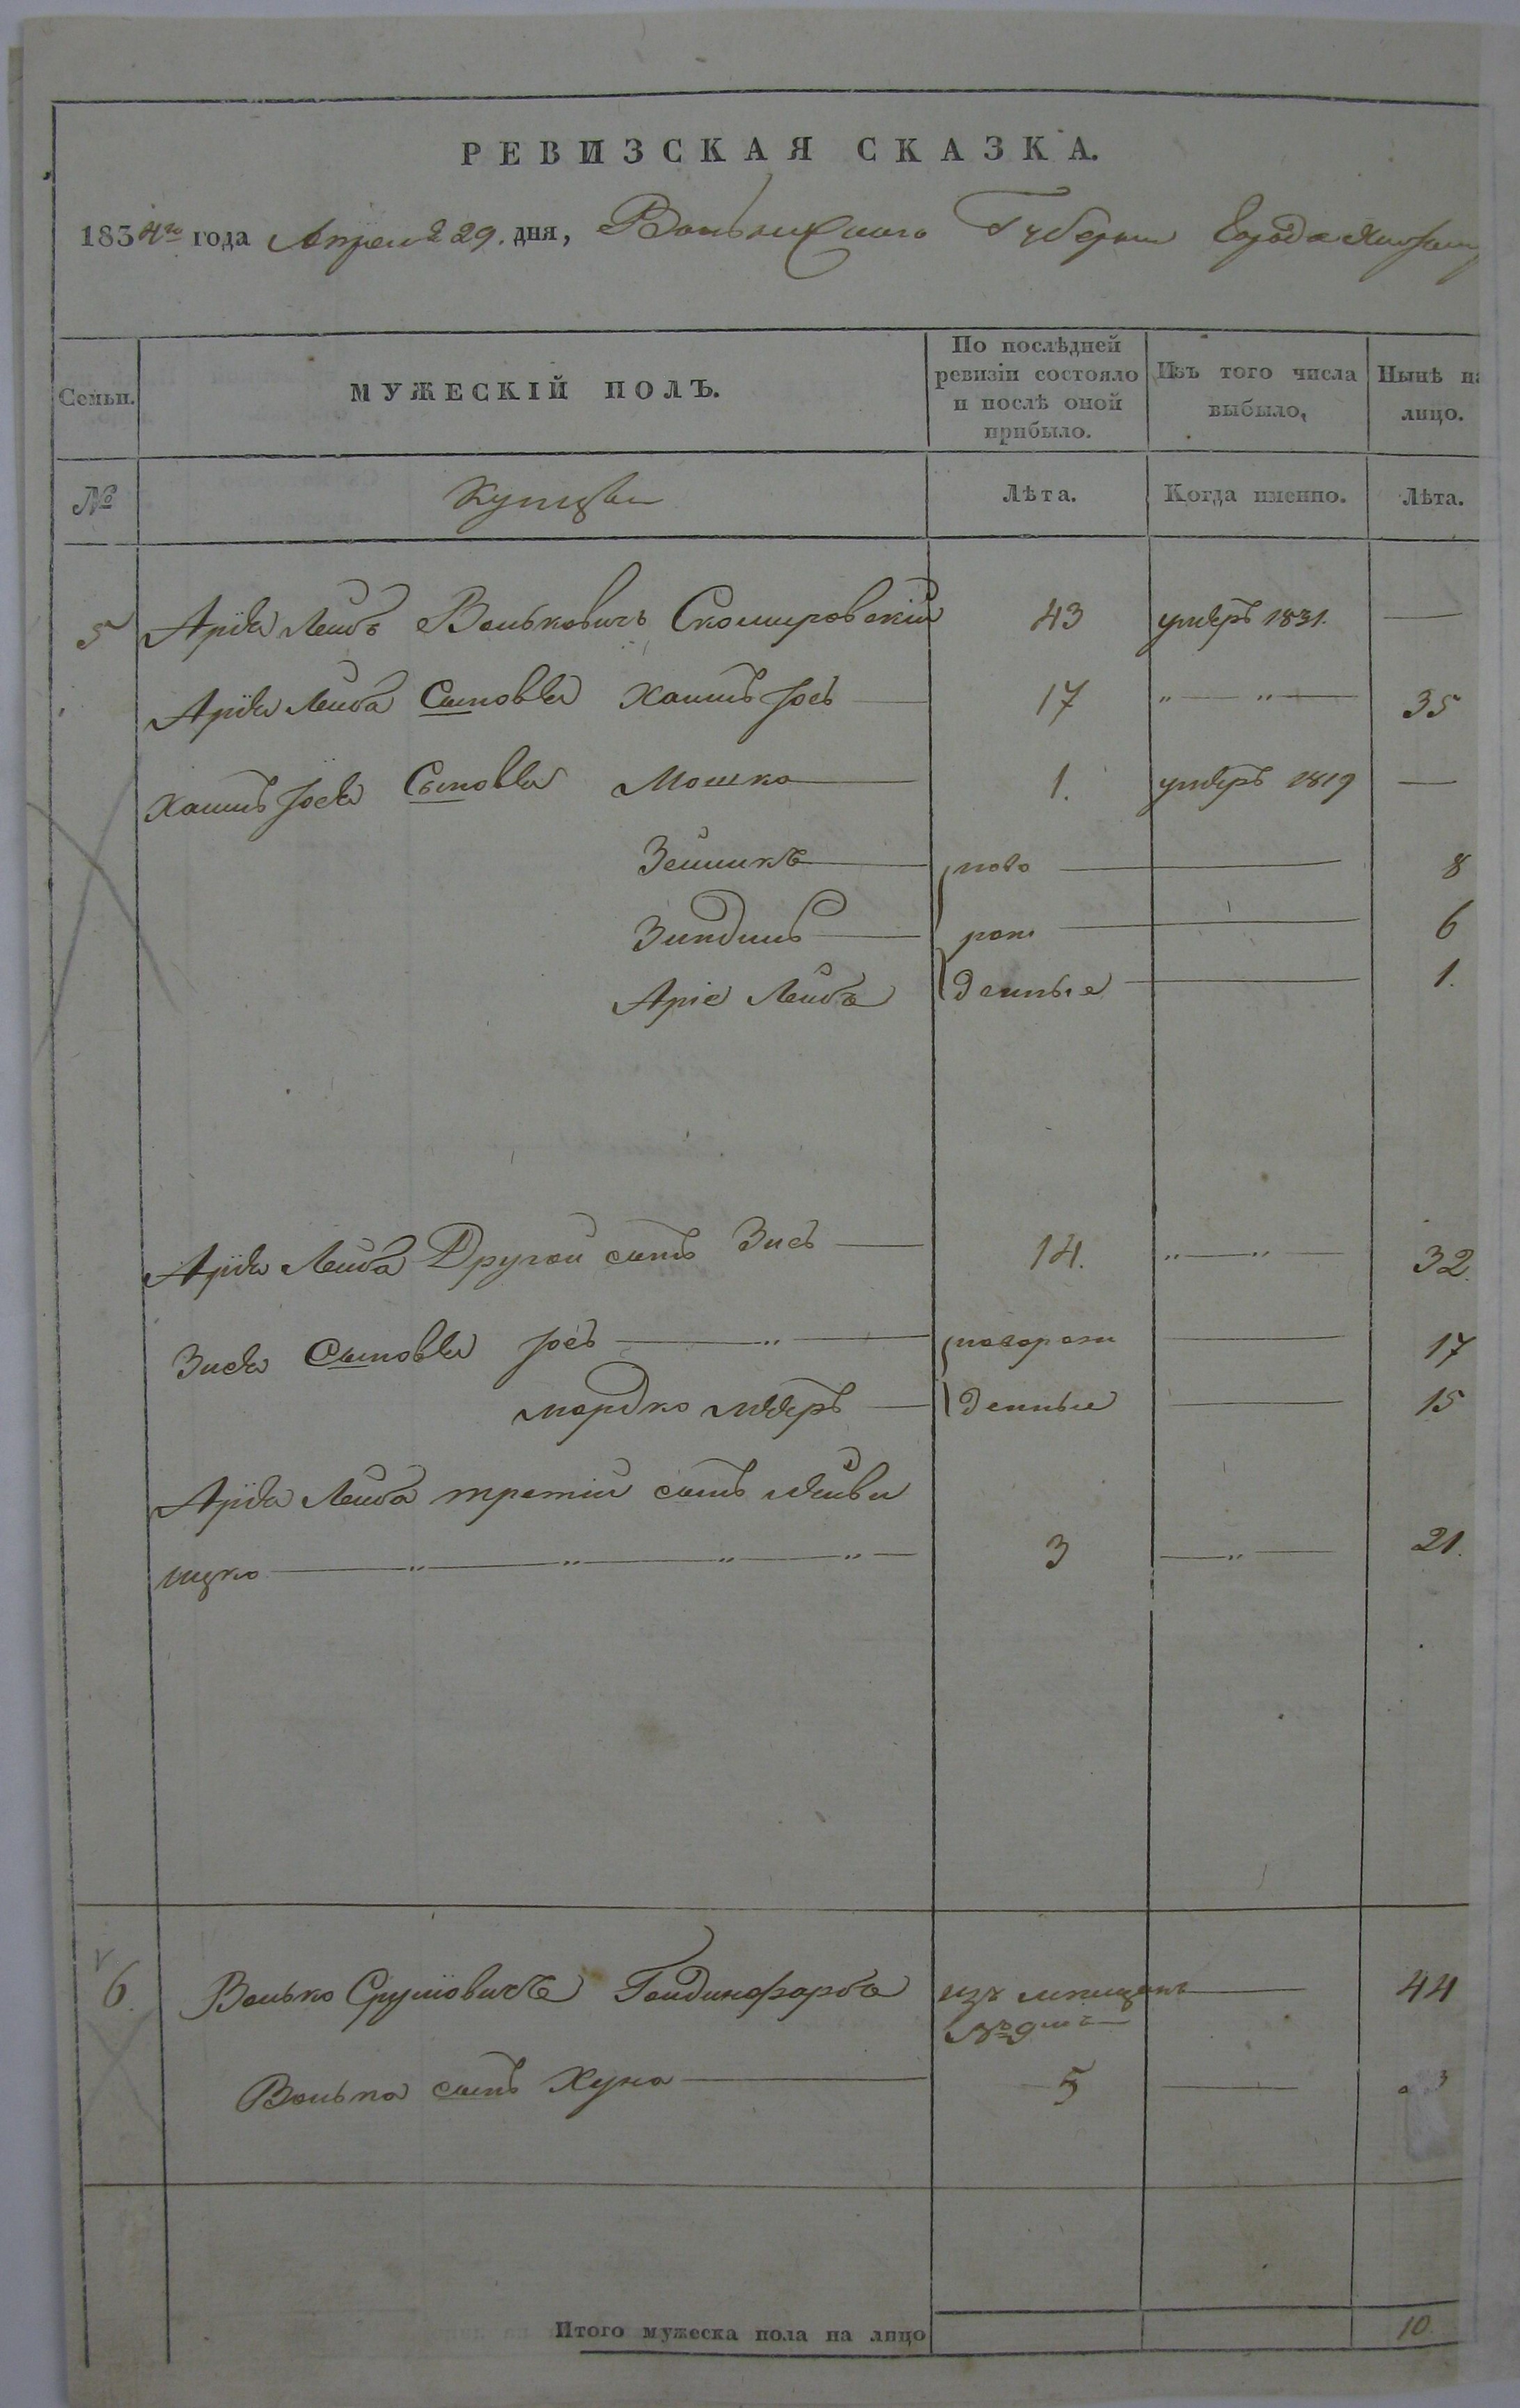 РЕВИЗСКАЯ СКАЗКА.
1834го года Апреля 29. дня, Волынской Губернии Города
Семьи. МУЖЕСКІЙ ПОЛЪ. По послѣдней ревизіи состояло и послѣ оной прибыло. Изъ того числа выбыло, Нынѣ на лицо.
№ Купцы Лѣта. Когда именно. Лѣта.
5 Аріа Лейбъ Вольковичъ 43 умеръ 1831. —
Аріа Лейба Сыновья Хаимъ Іосъ 17 " — " — 35
Хаимъ Іося Сыновья Мошко 1. умеръ 1819 —
Зейликъ ново — 8
рож — 6
Аріе Лейба денные — 1.
Аріа Лейба Другой сынъ Зись — 14. " — " — 32.
Зися Сыновья Іось — " — новорож — 17
Мордко Мееръ — денные — 15
Аріа Лейба третій сынъ
Ицко — " — " — " — " — 3 — " — 21.
6. Волько Сруліовичъ изъ мещанъ — 44
№ 9
Волька сынъ Хуна — 5 —
Итого мужеска пола на лицо 10